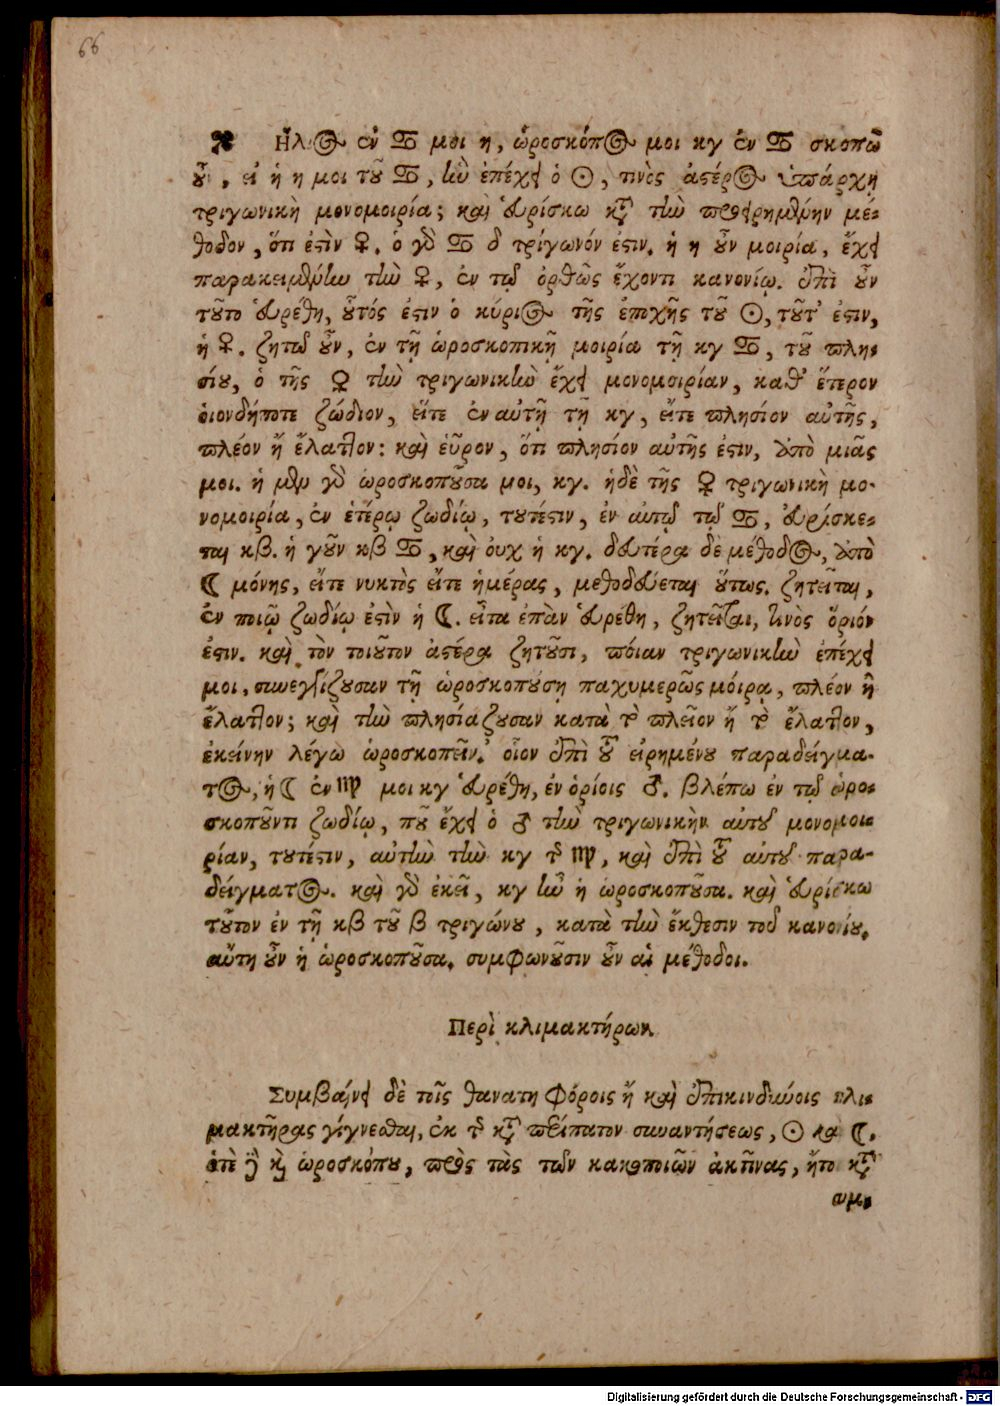 66
✤ Ηλι☉ ἐν ♋ μοι η, ὡροσκόπος μοι κγ ἐν ♋ σκοπῶ
οὖν, εἰ ἡ η μοι τοῦ ♋, ἣν ἐπέχει ὁ ☉, τινὸς ἀστέρος ὑπάρχῃ
τριγωνικὴ μονομοιρία; καὶ εὑρίσκω κατὰ τὴν προειρημένην μέ-
θοδον, ὅτι ἐστὶν ♀. ὁ γὰρ ♋ δ τρίγωνόν ἐστιν. ἡ η οὖν μοιρία, ἔχει
παρακειμένην τὴν ♀, ἐν τῷ ὀρθῶς ἔχοντι κανονίῳ. ἐπεὶ οὖν
τοῦτο εὑρέθη, οὗτός ἐστιν ὁ κύριος τῆς ἐποχῆς τοῦ ☉, τοῦτ' ἐστιν,
ἡ ♀. ζητῶ οὖν, ἐν τῇ ὡροσκοπικῇ μοιρία τῇ κγ ♋, τοῦ πλη-
σίου, ὁ τῆς ♀ τὴν τριγωνικὴν ἔχει μονομοιρίαν, καθ' ἕτερον
οἱονδήποτε ζώδιον, εἴτε ἐν αὐτῇ τῇ κγ, εἴτε πλησίον αὐτῆς,
πλέον ἢ ἔλαττον: καὶ εὗρον, ὅτι πλησίον αὐτῆς ἐστιν, ἀπὸ μιᾶς
μοι. ἡ μὲν γὰρ ὡροσκοποῦσα μοι, κγ. ἡ δὲ τῆς ♀ τριγωνικὴ μο-
νομοιρία, ἐν ἑτέρῳ ζωδίῳ, τουτέστιν, ἐν αὐτῷ τῷ ♋, εὑρίσκε-
ται κβ. ἡ γοῦν κβ ♋, καὶ οὐχ ἡ κγ. δευτέρα δὲ μέθοδος, ἀπὸ
☾ μόνης, εἴτε νυκτὸς εἴτε ἡμέρας, μεθοδεύεται οὕτως. ζητεῖται,
ἐν ποιῷ ζωδίῳ ἐστὶν ἡ ☾. εἶτα ἐπὰν εὑρέθη, ζητεῖται, τινὸς ὅριόν
ἐστιν. καὶ τὸν τοιοῦτον ἀστέρα ζητοῦσι, πόιαν τριγωνικὴν ἐπέχει
μοι, συνεγγίζουσαν τῇ ὡροσκοπούσῃ παχυμερῶς μόιρᾳ, πλέον ἢ
ἔλαττον; καὶ τὴν πλησιάζουσαν κατὰ τὸ πλεῖον ἢ τὸ ἔλαττον,
ἐκείνην λέγω ὡροσκοπεῖν. οἷον ἐπὶ τοῦ εἰρημένου παραδείγμα-
τος, ἡ ☾ ἐν ♍ μοι κγ εὑρέθη, ἐν ὁρίοις ♂. βλέπω ἐν τῷ ὡρο-
σκοποῦντι ζωδίῳ, ποῦ ἔχει ὁ ♂ τὴν τριγωνικὴν αὐτοῦ μονομοι-
ρίαν, τουτέστιν, αὐτὴν τὴν κγ τῆς ♍, καὶ ἐπὶ τοῦ αὐτοῦ παρα-
δείγματος. καὶ γὰρ ἐκεῖ, κγ ἦν ἡ ὡροσκοποῦσα. καὶ εὑρίσκω
τοῦτον ἐν τῇ κβ τοῦ β τριγώνου, κατὰ τὴν ἔκθεσιν τοῦ κανονίου.
αὕτη οὖν ἡ ὡροσκοποῦσα. συμφωνοῦσιν οὖν αἱ μέθοδοι.
Περὶ κλιμακτήρων
Συμβαίνει δὲ τοῖς θανατηφόροις ἢ καὶ ἐπικινδύνοις κλι-
μακτῆρας γίγνεσθαι, ἐκ τῆς κατὰ περίπατον συναντήσεως, ☉ καὶ ☾,
ὁτὲ δὲ καὶ ὡροσκόπου, πρὸς τὰς τῶν κακοποιῶν ἀκτῖνας, ἤτοι κατὰ
συμ-
Digitalisierung gefördert durch die Deutsche Forschungsgemeinschaft - DFG